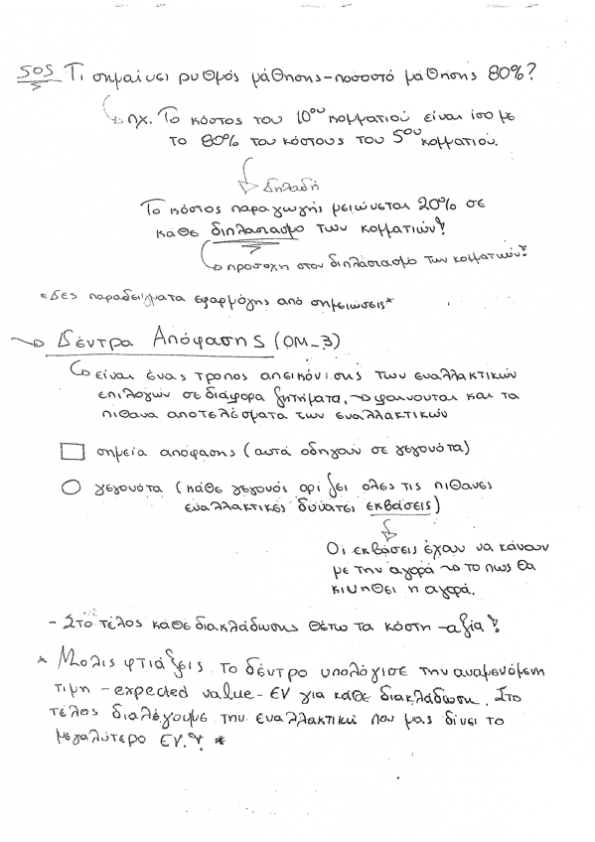 SOS Τι σημαίνει ρυθμός μάθησης-ποσοστό μάθησης 80%?
πχ. Το κόστος του 10ου κομματιού είναι ίσο με
το 80% του κόστους του 5ου κομματιού.
δηλαδή
Το κόστος παραγωγής μειώνεται 20% σε
κάθε διπλασιασμό των κομματιών!
προσοχή στον διπλασιασμό των κομματιών!
*Δες παραδείγματα εφαρμογής από σημειώσεις*
Δέντρα Απόφασης (ΟΜ_3)
είναι ένας τρόπος απεικόνισης των εναλλακτικών
επιλογών σε διάφορα ζητήματα, φαίνονται και τα
πιθανά αποτελέσματα των εναλλακτικών
σημεία απόφασης (αυτά οδηγούν σε γεγονότα)
γεγονότα (κάθε γεγονός ορίζει όλες τις πιθανές
εναλλακτικές δυνατές εκβάσεις)
Οι εκβάσεις έχουν να κάνουν
με την αγορά το πως θα
κινηθεί η αγορά.
- Στο τέλος κάθε διακλάδωσης θέτω τα κόστη-αξία!
* Μόλις φτιάξεις το δέντρο υπολόγισε την αναμενόμενη
τιμή - expected value - EV για κάθε διακλάδωση. Στο
τέλος διαλέγουμε την εναλλακτική που μας δίνει το
μεγαλύτερο EV.! *